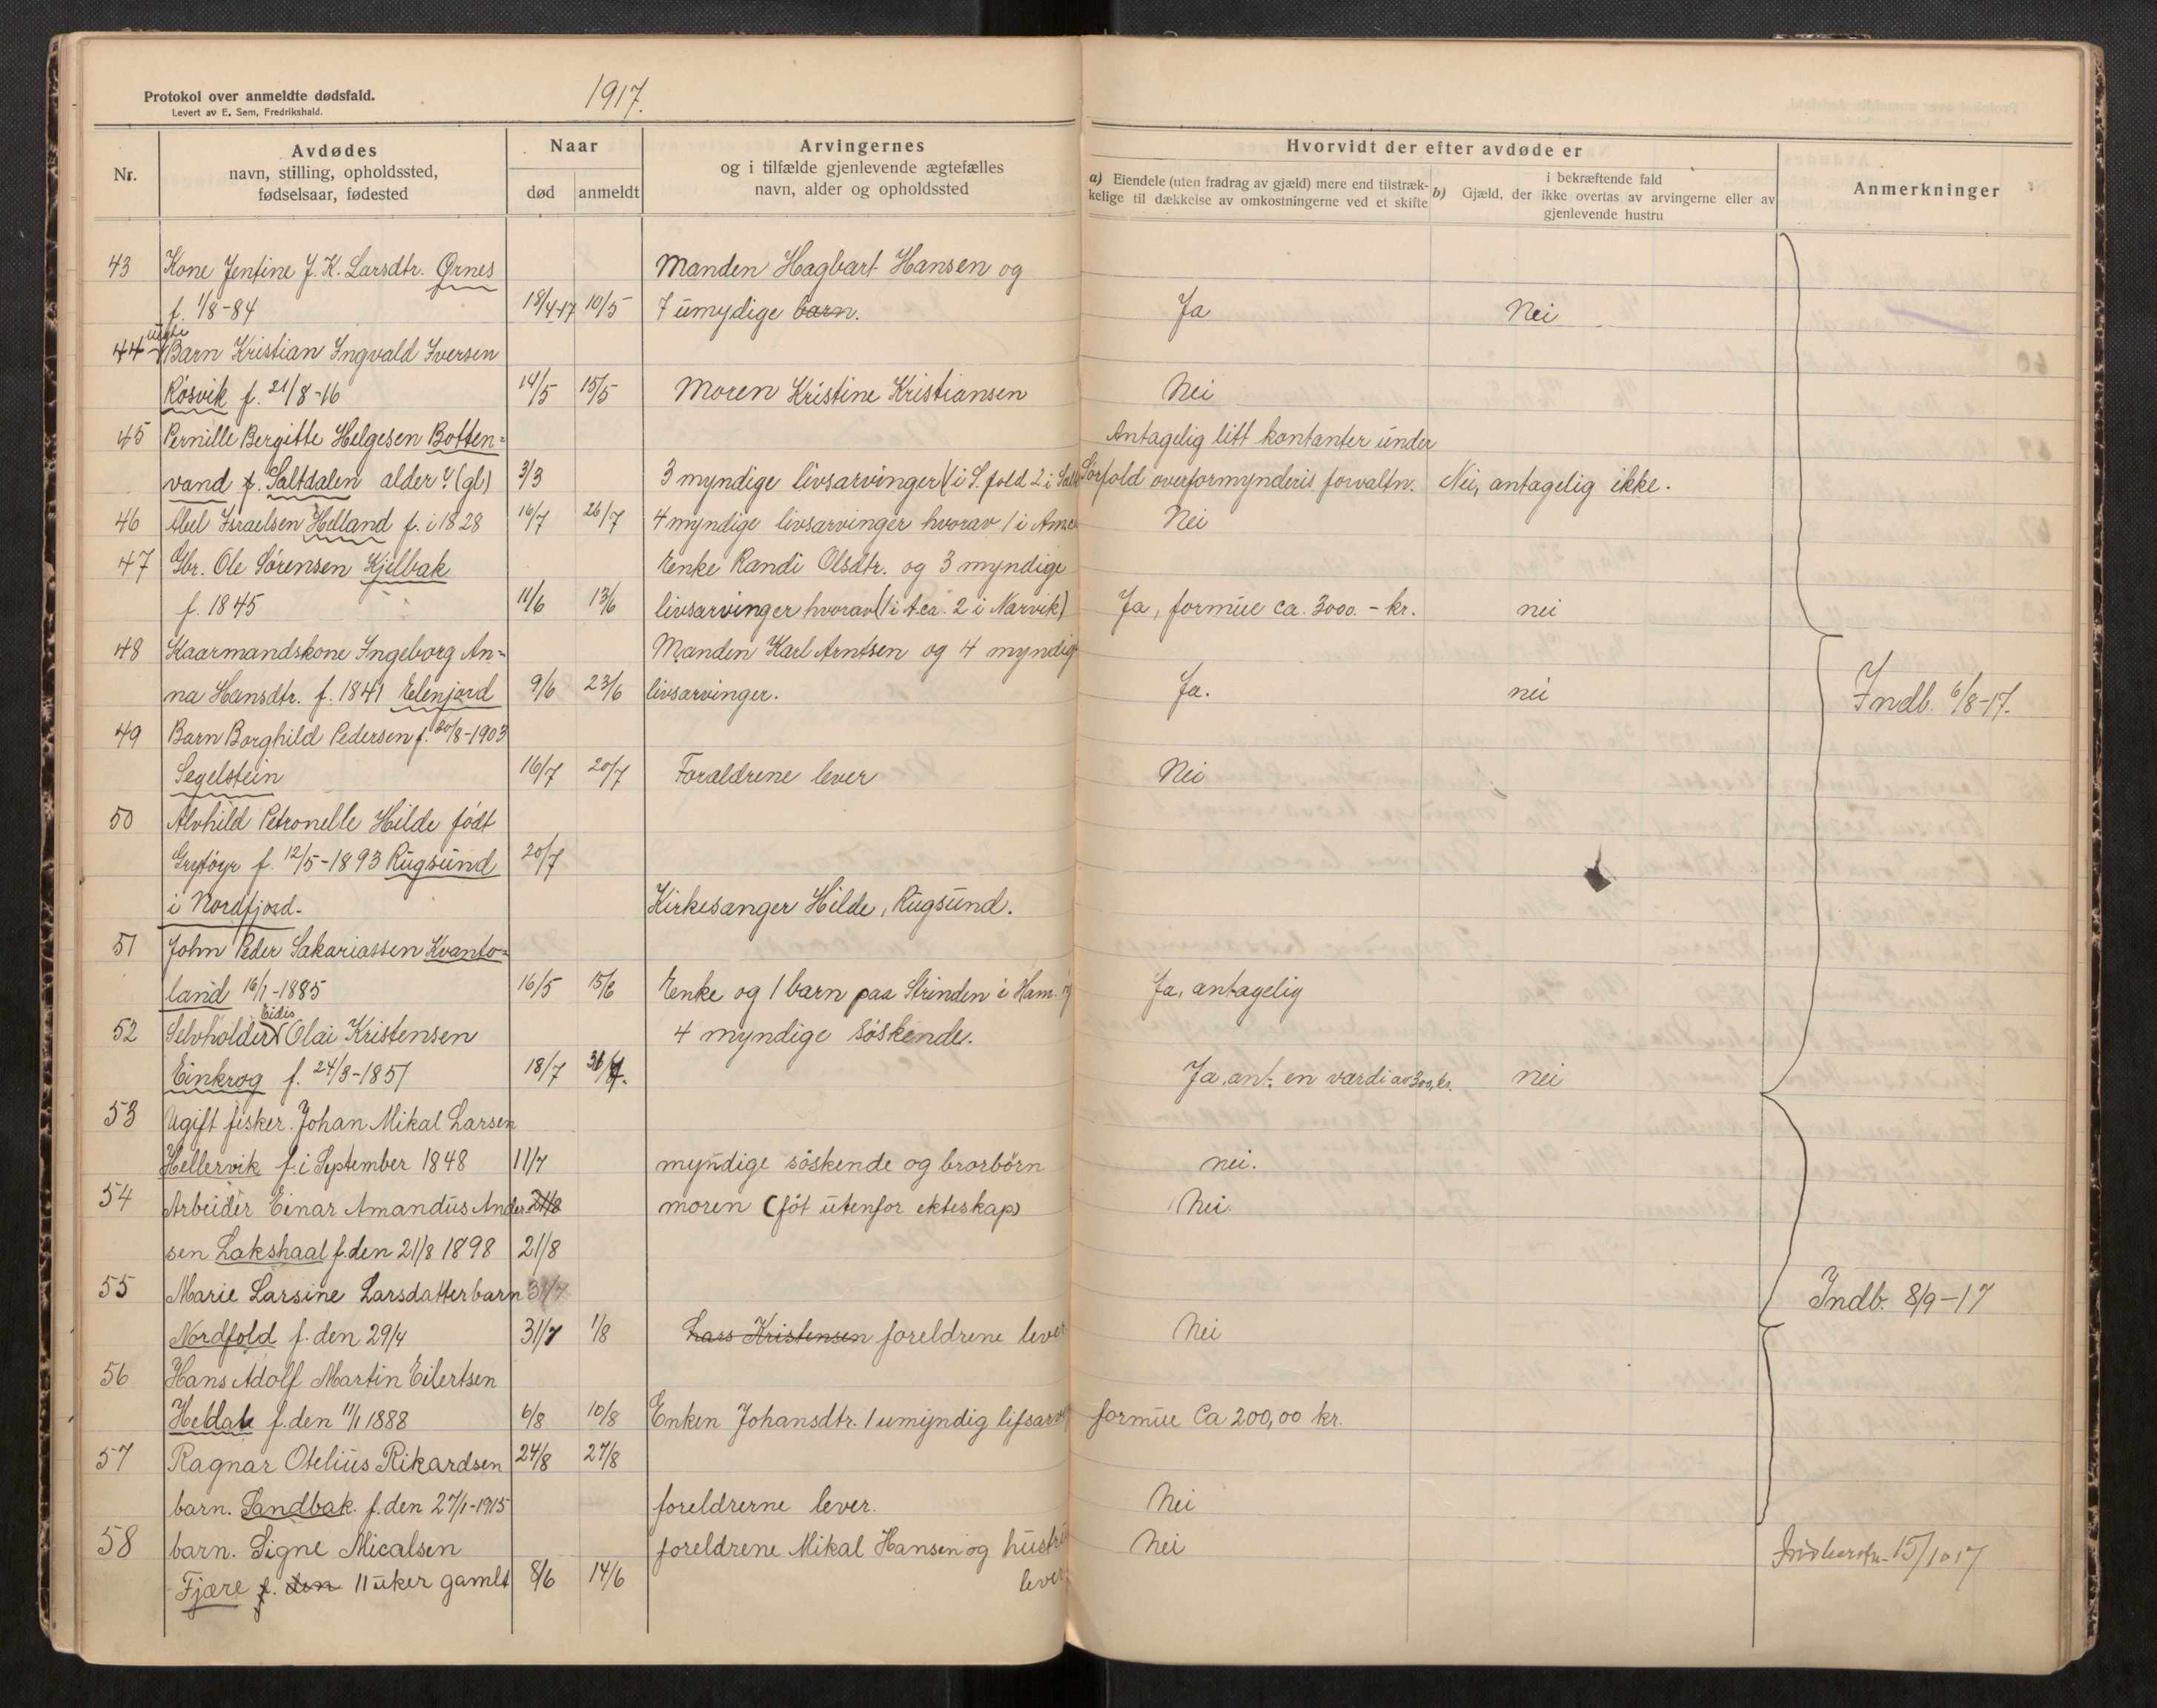 Protokol over anmeldte dødsfald.
Levert av E. Sem, Fredrikshald.
1917.
Nr.
Avdødes
navn, stilling, opholdssted,
fødselsaar, fødested
Naar
død
anmeldt
Arvingernes
og i tilfælde gjenlevende ægtefælles
navn, alder og opholdssted
Hvorvidt der efter avdøde er
a) Eiendele (uten fradrag av gjæld) mere end tilstræk-
kelige til dækkelse av omkostningerne ved et skifte
i bekræftende fald
b) Gjæld, der ikke overtas av arvingerne eller av
gjenlevende hustru
Anmerkninger
43 Kone Jentine J. K. Larsdtr. Ørnes Manden Hagbart Hansen og
f. 1/8-84 18/4-17 10/5 7 umydige barn. Ja Nei
uegte
44 Barn Kristian Ingvald Iversen
Røsvik f. 21/8-16 14/5 15/5 Moren Kristine Kristiansen Nei
45 Pernille Bergitte Helgesen Botten= Antagelig litt kontanter under
vand f. Saltdalen alder? (gl) 3/3 3 myndige livsarvinger (1 i S. fold 2 i Sørfold overformynderis forvaltn. Nei, antagelig ikke.
46 Abel Israelsen Helland f. i 1828 16/7 26/7 4 myndige livsarvinger hvorav 1 i Nei
47 Gbr. Ole Sørensen Kjelbak Enke Randi Olsdtr. og 3 myndige
f. 1845 11/6 13/6 livsarvinger hvorav (1 i A.ca. 2 i Narvik) Ja, formue ca. 3000.- kr. nei
48 Kaarmandskone Ingeborg An= Manden Karl Arntsen og 4 myndige
na Hansdtr. f. 1841 Elenjord 9/6 23/6 livsarvinger. Ja. nei
Indb. 6/8-17.
49 Barn Borghild Pedersen f. 20/8-1903
Segelstein 16/7 20/7 Foraldrene lever Nei
50 Alvhild Petronelle Hilde født
Grytøyr f. 12/5-1893 Rugsund 20/7
i Nordfjord. Kirkesanger Hilde, Rugsund.
51 John Peder Sakariassen Kvanto=
land 16/1-1885 16/5 15/6 Enke og 1 barn paa Strinden i Ja, antagelig
Eidis
52 Selvholder Olai Kristensen 4 myndige søskende.
Einkrog f. 24/3-1851 18/7 Ja, ant. en værdi av 300 kr. nei
53 Ugift fisker. Johan Mikal Larsen
Hellervik f. i September 1848 11/7 myndige søskende og brorbørn nei.
54 Arbeider Einar Amandus Ander 21/8 moren (føt utenfor ekteskap) Nei.
sen Lakshaal f. den 21/8 1898 21/8
55 Marie Larsine Larsdatter barn 31/7
Indb. 8/9-17
Nordfold f. den 29/4 31/7 1/8 Lars Kristensen foreldrene lever Nei
56 Hans Adolf Martin Eilertsen
Heldal f. den 11/1 1888 6/8 10/8 Enken Johansdtr. 1 umyndig formue Ca 200,00 kr.
57 Ragnar Otelius Rikardsen 24/8 27/8
barn. Sandbak. f. den 27/1-1915 foreldrerne lever. Nei
58 barn. Signe Micalsen foreldrene Mikal Hansen og hustru Nei
15/10 17
Fjære f. den 11 uker gamlt 8/6 14/6 lever